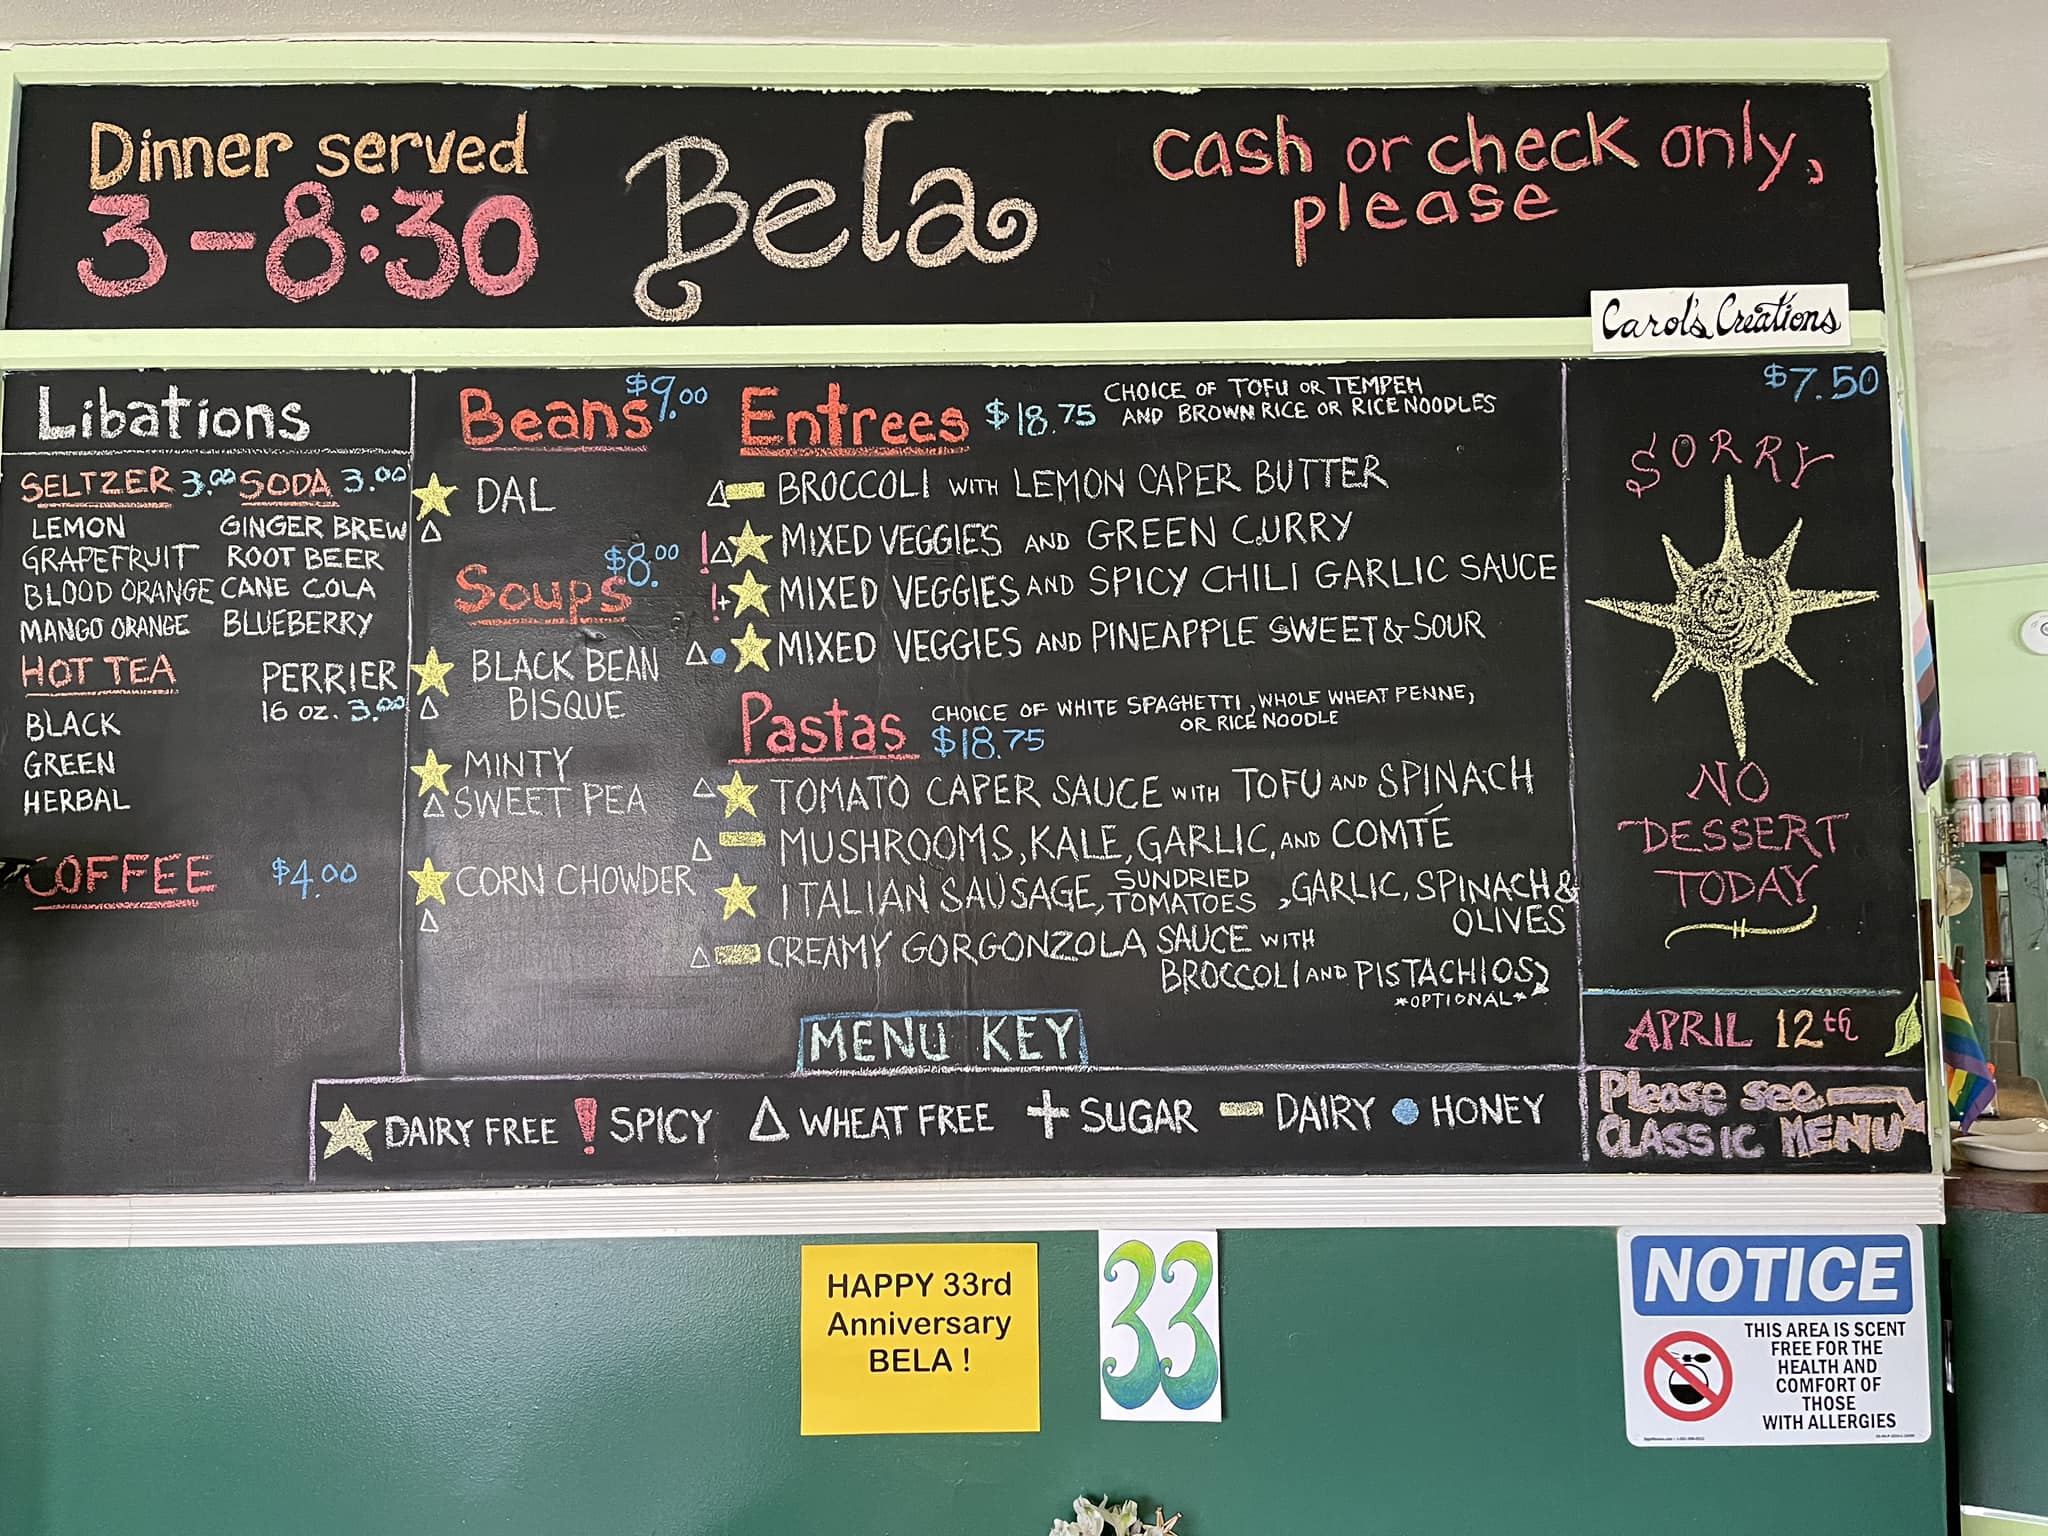 Dinner served
3-8:30
Bela
cash or check only,
please
Carol's Creations
Libations
SELTZER 3.00
LEMON
GRAPEFRUIT
BLOOD ORANGE
MANGO ORANGE
SODA 3.00
GINGER BREW
ROOT BEER
CANE COLA
BLUEBERRY
HOT TEA
BLACK
GREEN
HERBAL
PERRIER
16 OZ. 3.00
COFFEE $4.00
Beans $9.00
DAL
Soups $8.00
BLACK BEAN
BISQUE
MINTY
SWEET PEA
CORN CHOWDER
Entrees $18.75
CHOICE OF TOFU OR TEMPEH
AND BROWN RICE OR RICE NOODLES
BROCCOLI WITH LEMON CAPER BUTTER
! MIXED VEGGIES AND GREEN CURRY
!+ MIXED VEGGIES AND SPICY CHILI GARLIC SAUCE
MIXED VEGGIES AND PINEAPPLE SWEET & SOUR
Pastas
CHOICE OF WHITE SPAGHETTI, WHOLE WHEAT PENNE,
OR RICE NOODLE
$18.75
TOMATO CAPER SAUCE WITH TOFU AND SPINACH
MUSHROOMS, KALE, GARLIC, AND COMTÉ
ITALIAN SAUSAGE, SUNDRIED TOMATOES, GARLIC, SPINACH &
OLIVES
CREAMY GORGONZOLA SAUCE WITH
BROCCOLI AND PISTACHIOS
*OPTIONAL*
MENU KEY
DAIRY FREE ! SPICY WHEAT FREE + SUGAR - DAIRY HONEY
$7.50
SORRY
NO
DESSERT
TODAY
APRIL 12th
Please see
CLASSIC MENU
HAPPY 33rd
Anniversary
BELA !
33
NOTICE
THIS AREA IS SCENT
FREE FOR THE
HEALTH AND
COMFORT OF
THOSE
WITH ALLERGIES